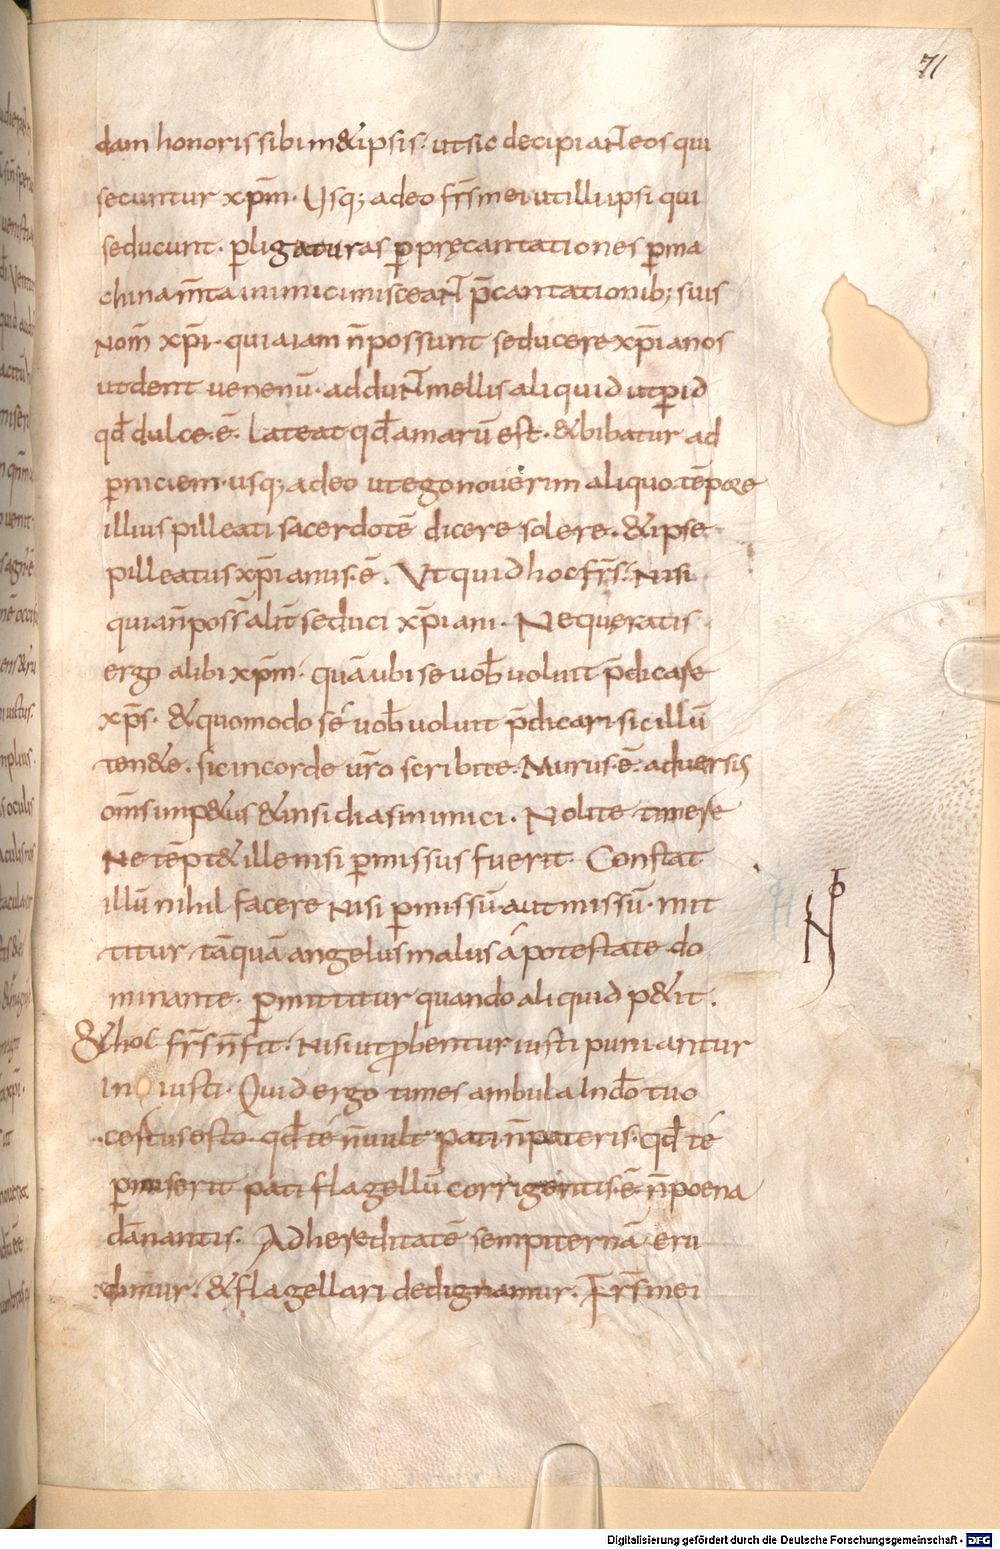 71
dam honoris sibi in & ipsis. ut sic decipiant eos qui
secuntur xp̄m. Usq; adeo fr̄s mei ut illi ipsi qui
seducunt. p̱ ligaturas p̱ pręcantationes p̱ ma
chinam̄ta inimici misceant p̄cantationib; suis
Nom̄ xp̄i. quia iam n̄ possunt seducere xp̄ianos
ut dent uenenū. addunt mellis aliquid ut p̱ id
qđ dulce. ē. Lateat qđ amarū est. & bibatur ad
p̱niciem. usq; adeo ut ego nouerim aliquo tēpore
illius pilleati sacerdotē dicere solere. & ipse
pilleatus xp̄ianus. ē. Ut quid hoc fr̄s. Nisi
quia n̄ poss̄ alit̄ seduci xp̄iani. Ne queratis
ergo alibi xp̄m. quā ubi se uob̄ uoluit p̄dicare
xp̄s. & quomodo sé uob̄ uoluit p̄dicari sic illū
ten&e. sic in corde ur̄o scribite. Murus. ē. aduersis
om̄s imp&us & insidias inimici. Nolite timere
Ne tēpt& ille nisi p̱missus fuerit. Constat
illū nihil facere Nisi p̱missū aut missū. mit
titur tāquā angelus malus á potestate do
minante. p̱mittitur quando aliquid p&it.
& hoc fr̄s n̄ fit. Nisi ut ꝓbentur iusti puniantur
In iusti. Quid ergo times ambula In dō tuo
certus esto. qđ té n̄ uult pati n̄ pateris. qđ té
p̱miserit pati flagellū corrigentis. ē. n̄ poena
dānantis. Ad hereditatē sempiternā eru
dimur. & flagellari dedignamur. Fr̄s mei
Digitalisierung gefördert durch die Deutsche Forschungsgemeinschaft - DFG